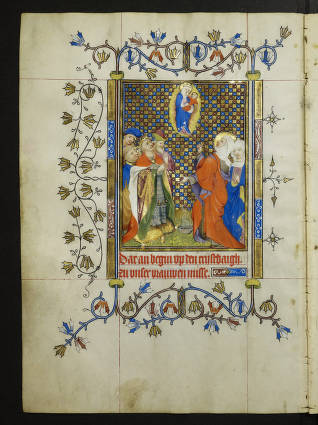 Dat an begin vp den eirstdaigh
du vnser vrauwen misse.